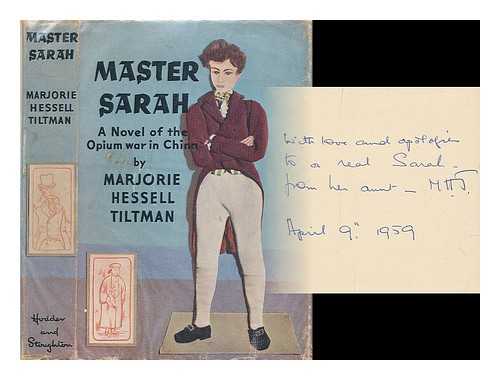 MASTER
SARAH
MARJORIE
HESSELL
TILTMAN
Hodder
and
Stoughton
MASTER
SARAH
A Novel of the
Opium war in China
by
MARJORIE
HESSELL
TILTMAN
With love and apologies
to a real Sarah -
from her aunt - M.H.T.
April 9th 1959